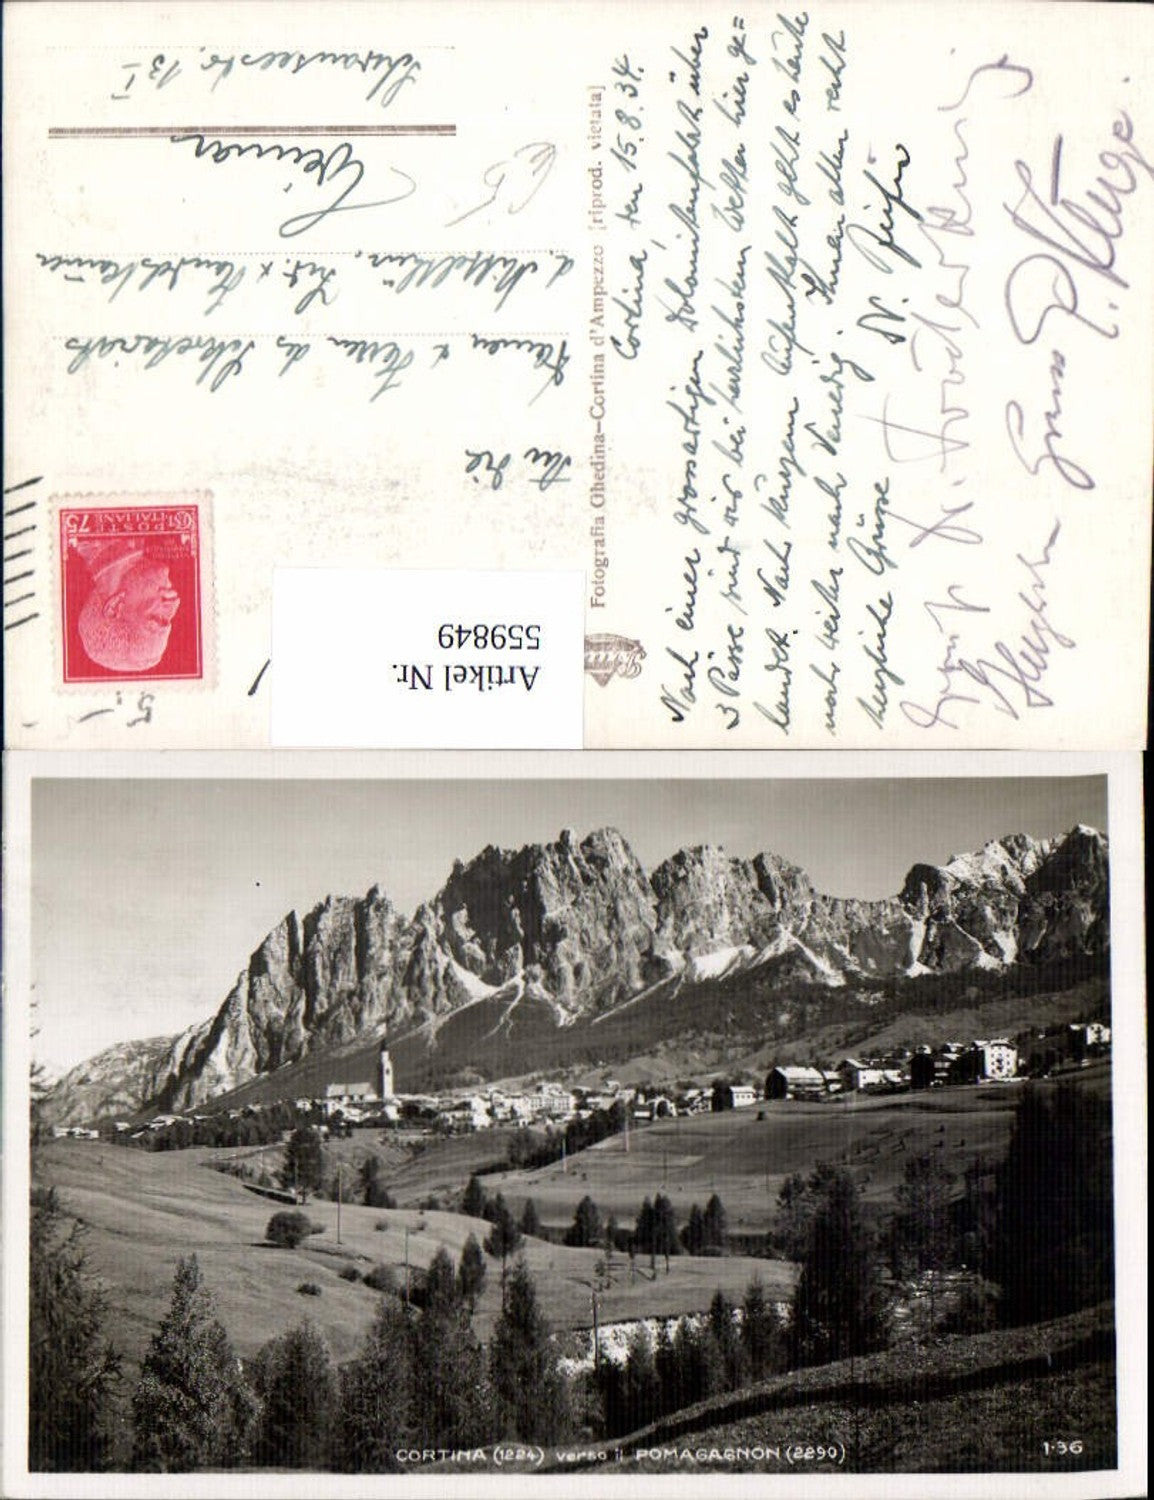 Cortina, den 15.8.34.
Nach einer grossartigen Dolomitenfahrt über
3 Pässe sind wir bei herrlichstem Wetter hier ge=
landet. Nach kurzem Aufenthalt geht es heute
noch weiter nach Venedig. Ihnen allen recht
herzliche Grüsse
Fotografia Ghedina-Cortina d'Ampezzo [riprod. vietata]
An die
Damen u. Herren des Sekretariats
d.
Weimar
Schwanseestr. 13 I
POSTE
ITALIANE 75
Artikel Nr.
559849
CORTINA (1224) verso il POMAGAGNON (2290)
1-36